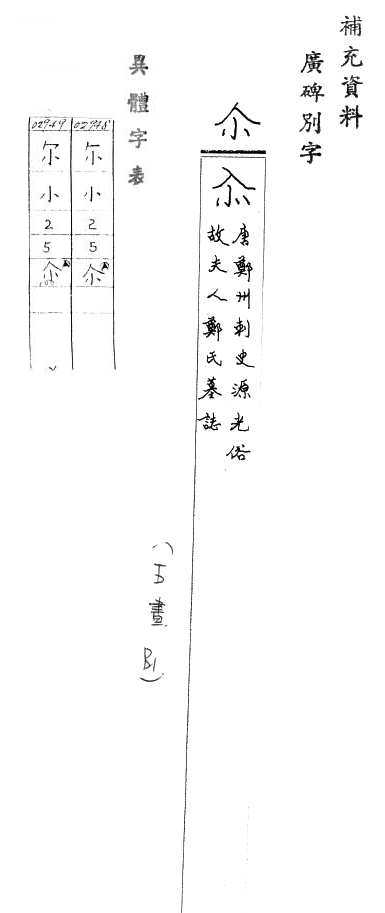 補充資料
廣碑別字
尒
尒
唐鄭州刺史源光俗
故夫人鄭氏墓誌
異體字表
02948
尓
小
2
5
尒
02949
尔
小
2
5
尒
(五畫 B1)